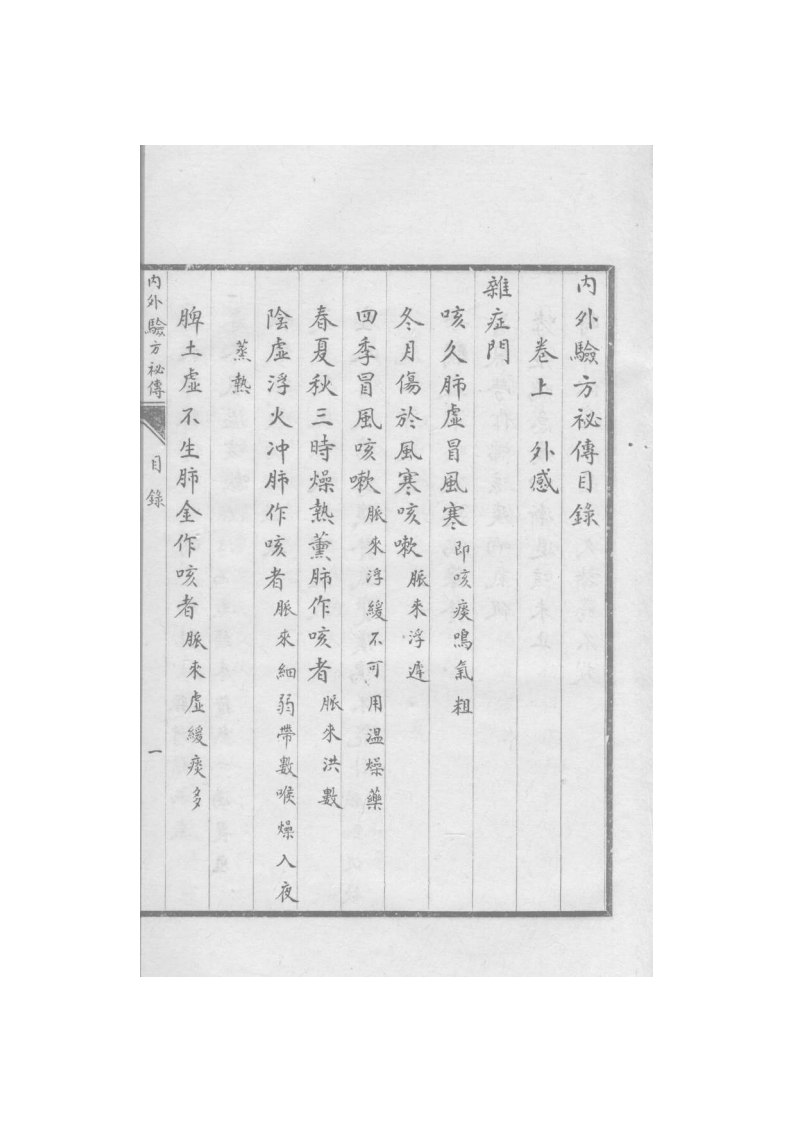 內外驗方祕傳目錄
卷上 外感
雜症門
咳久肺虛冒風寒即咳痰鳴氣粗
冬月傷於風寒咳嗽脈來浮遲
四季冒風咳嗽脈來浮緩不可用溫燥藥
春夏秋三時燥熱薰肺作咳者脈來洪數
陰虛浮火冲肺作咳者脈來細弱帶數喉燥入夜
蒸熱
脾土虛不生肺金作咳者脈來虛緩痰多
內外驗方祕傳 目錄 一